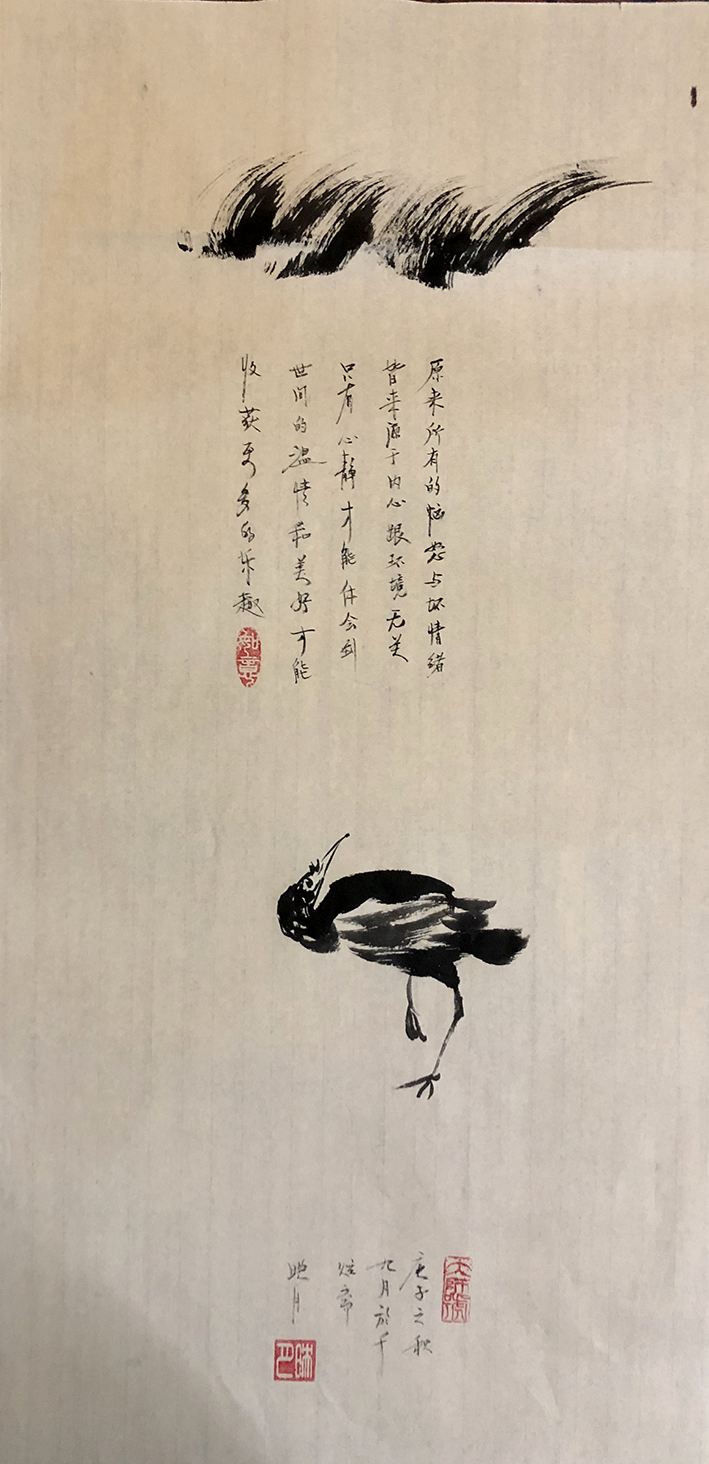 原来所有的恼怒与坏情绪
皆来源于内心跟环境无关
只有心静才能体会到
世间的温情和美好才能
收获更多的乐趣
如意
庚子之秋
九月於千